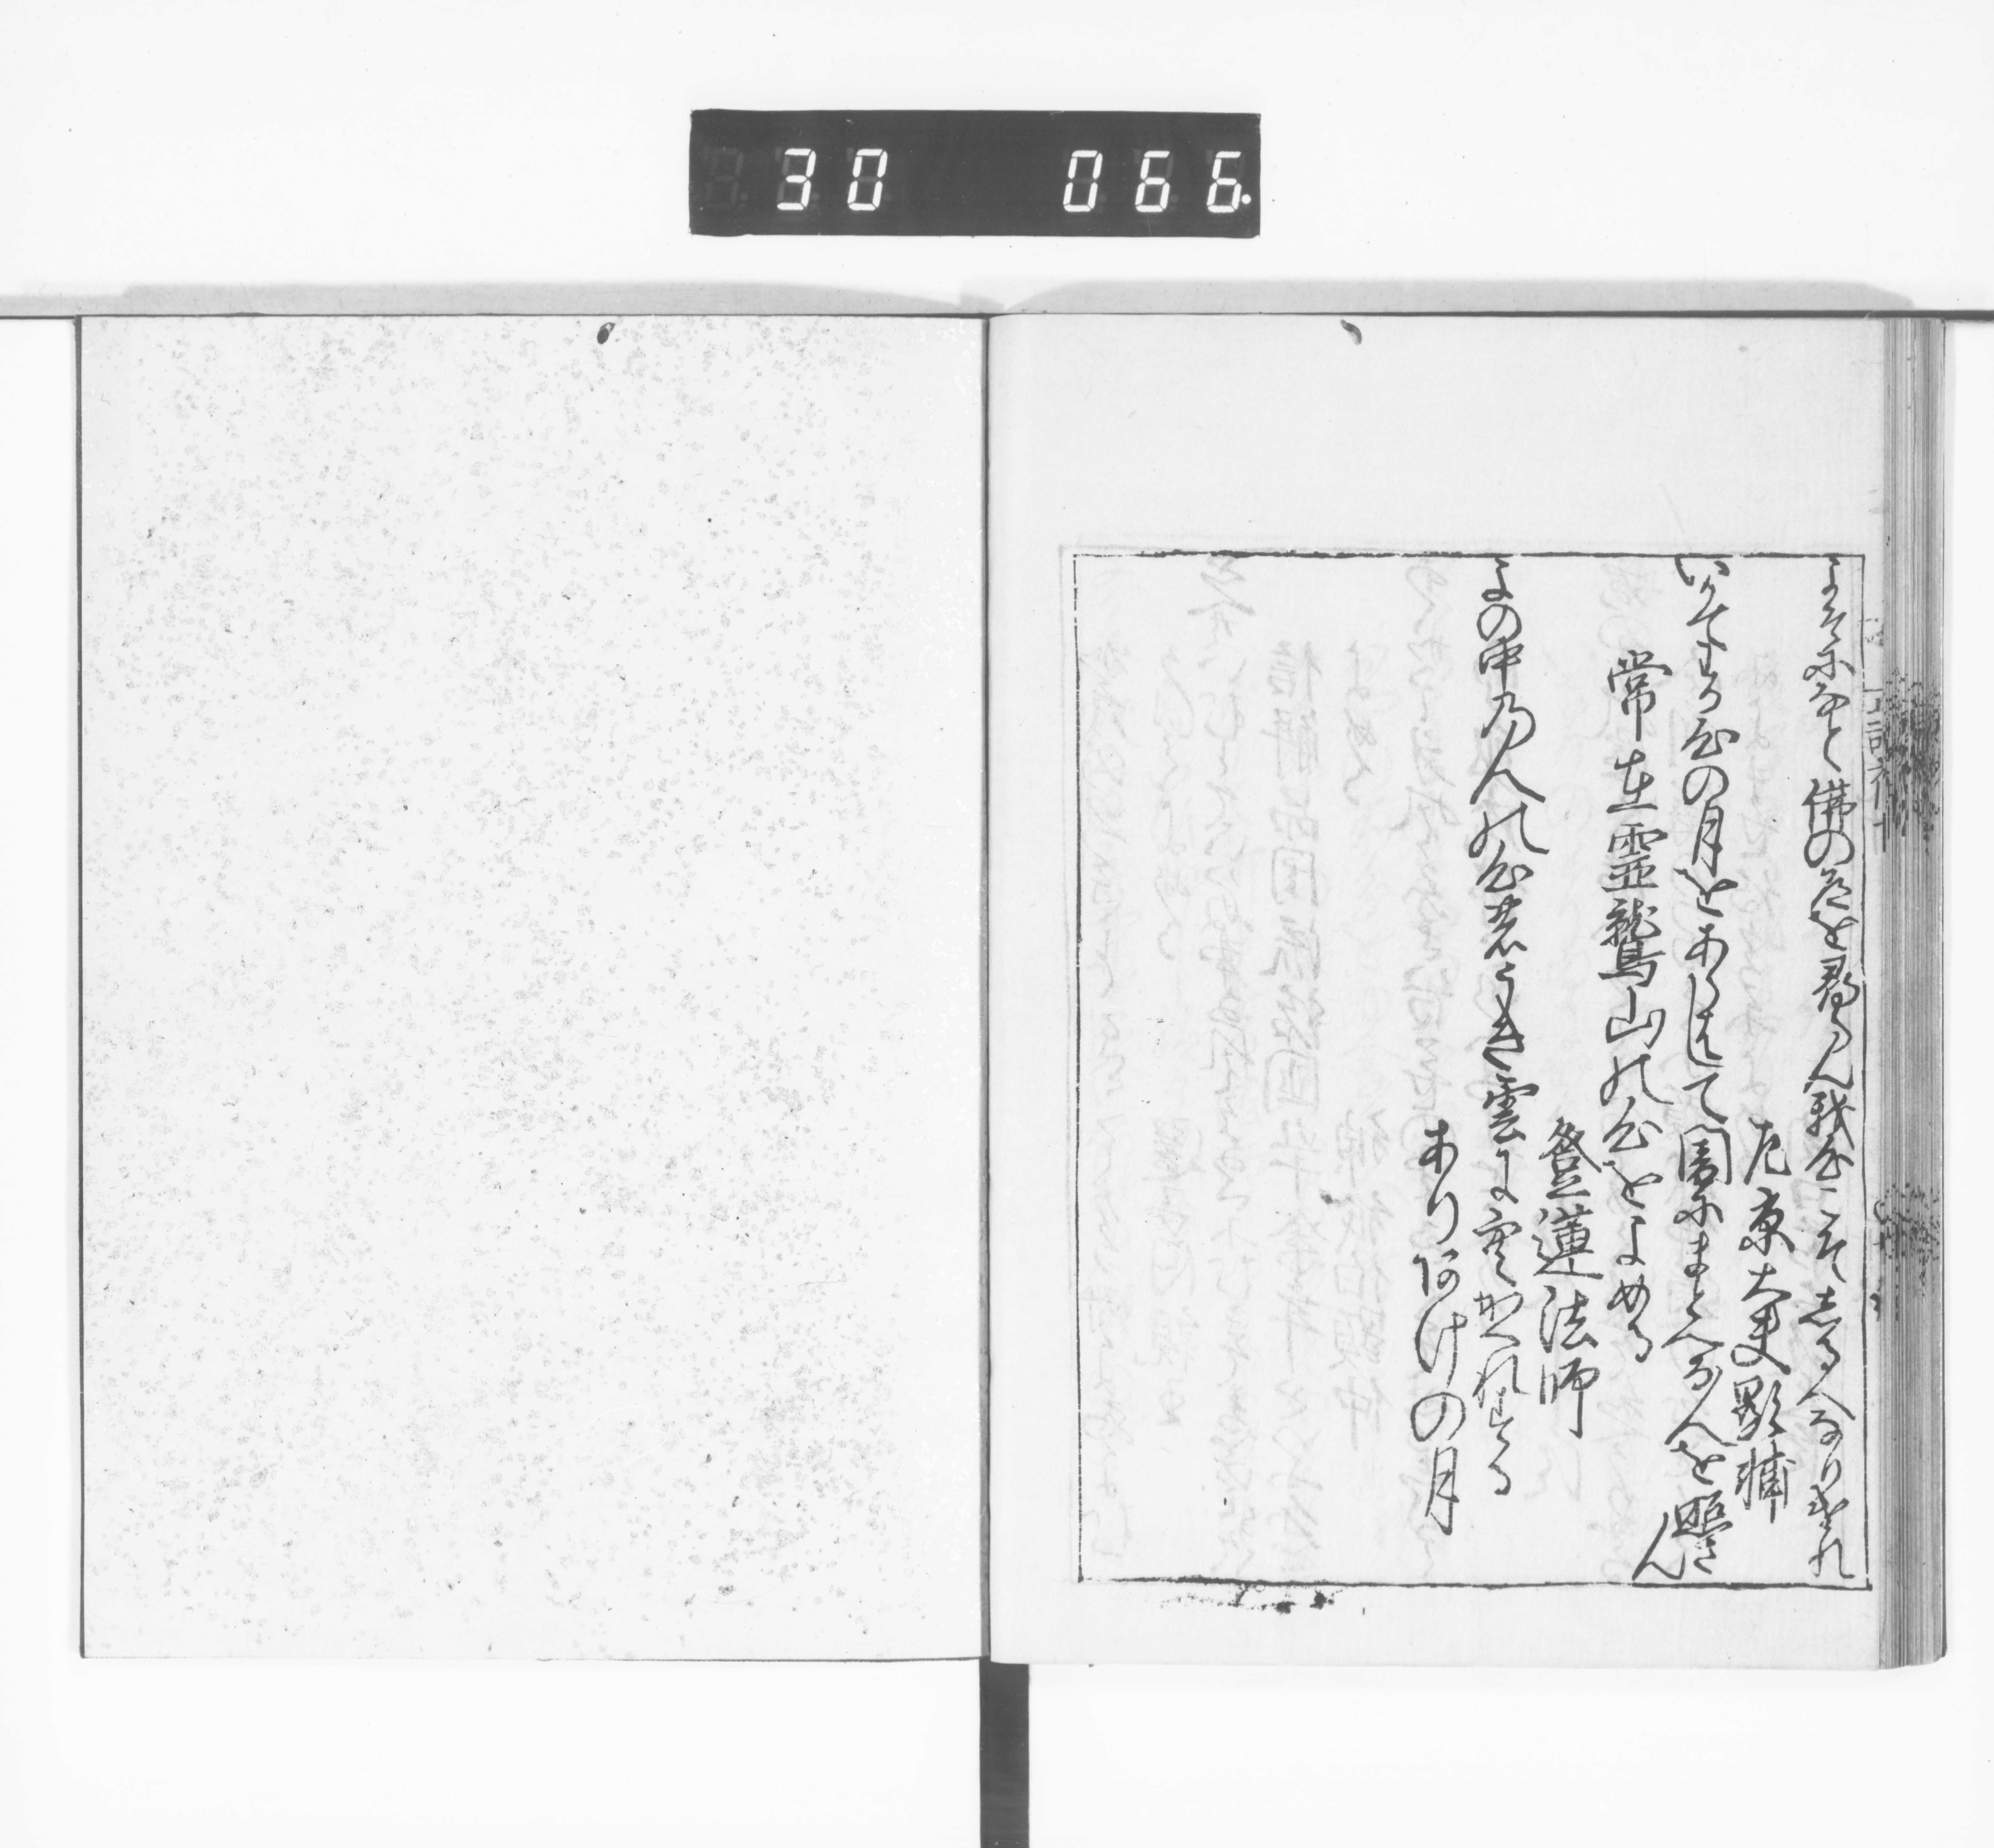 30 066.
よそになと佛の道を尋らん我心こそしるへなりけれ
左京大夫顕輔
いかてわか心の月をあらはして闇にまとへる人を照さ
ん
常在霊鷲山の心をよめる
登蓮法師
よの中の人の心のうき雲に空かくれする
ありあけの月